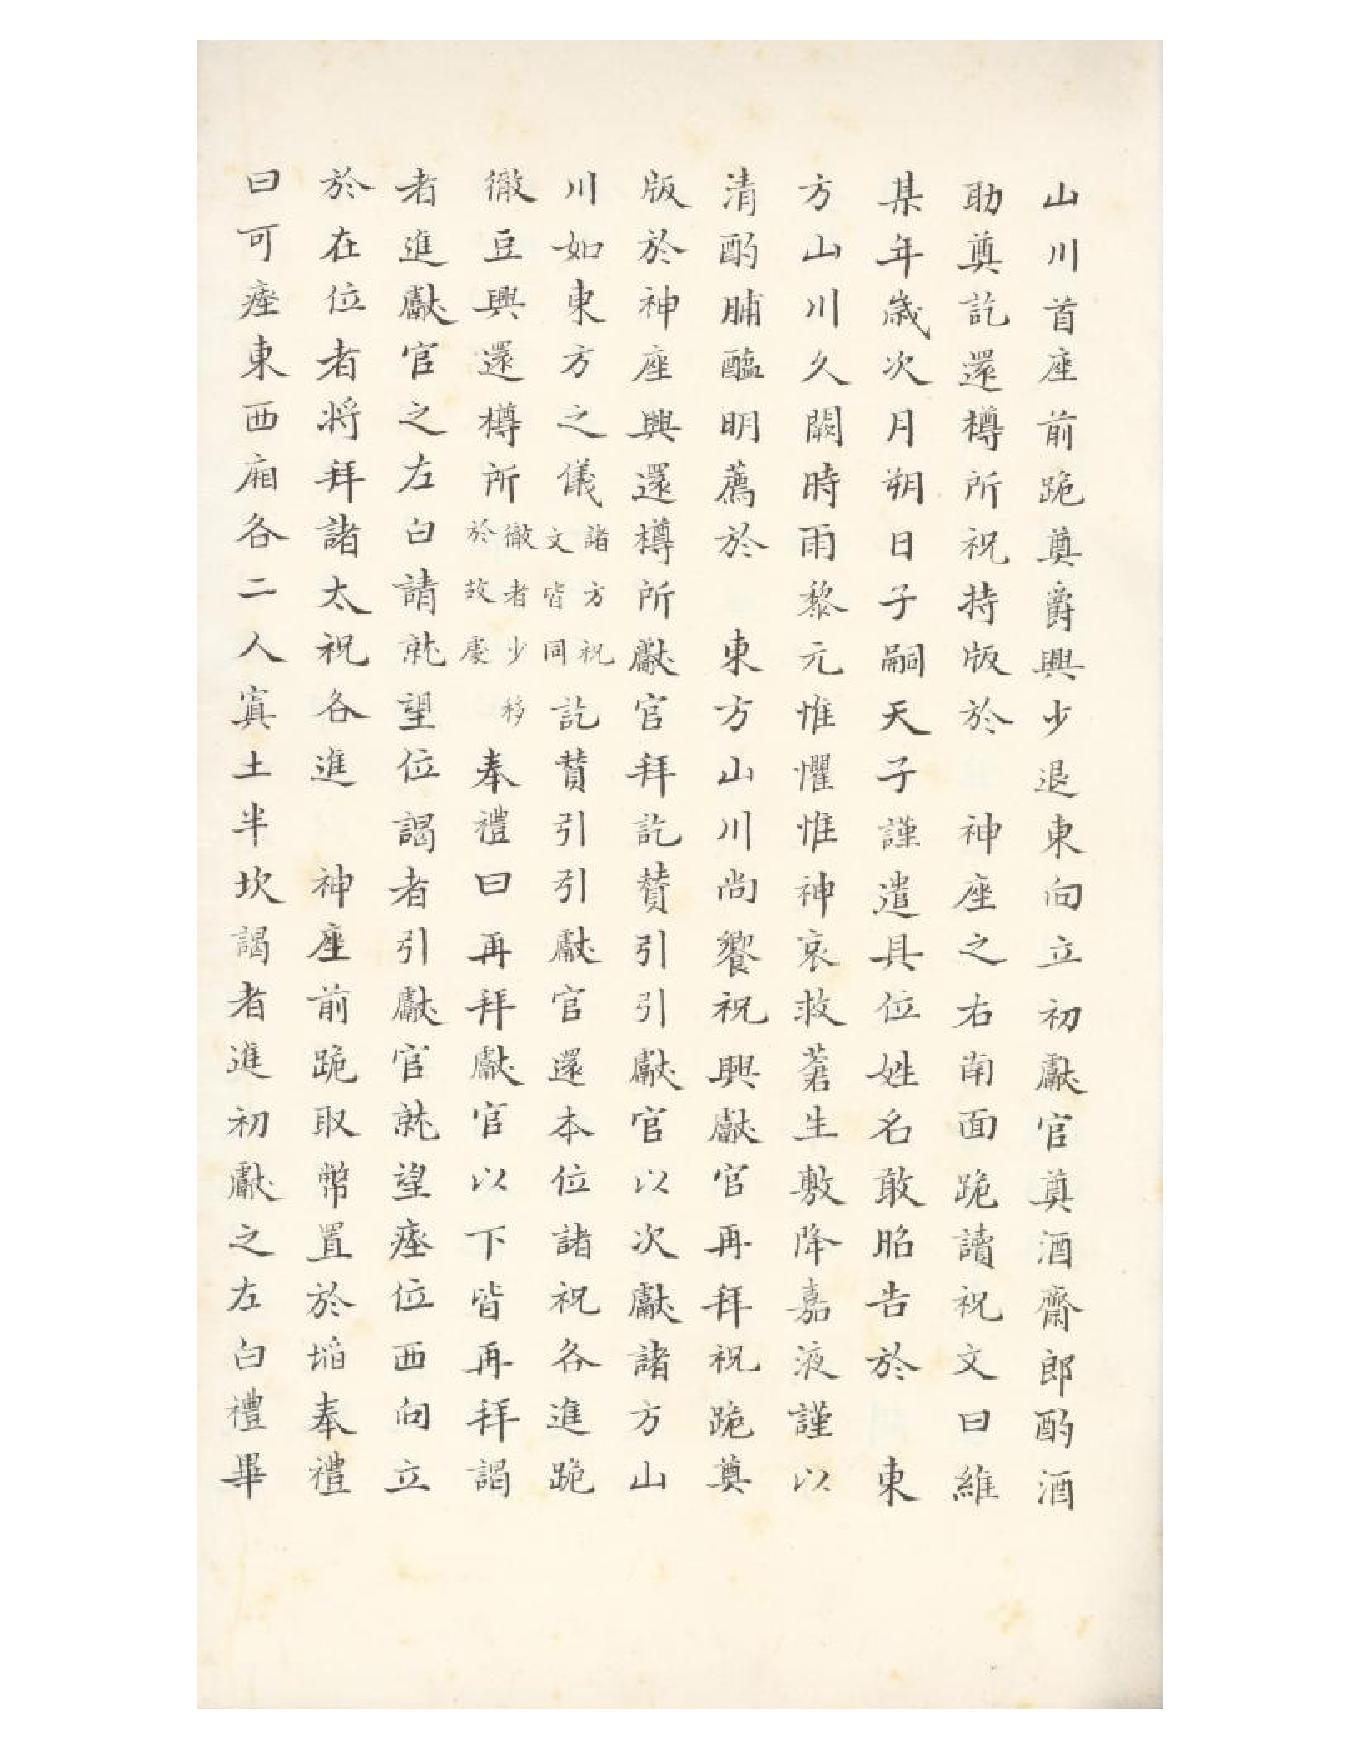 山川首座前跪奠爵興少退東向立初獻官奠酒齋郎酌酒
助奠訖還樽所祝持版於　神座之右南面跪讀祝文曰維
某年歲次月朔日子嗣天子謹遣具位姓名敢昭告於　東
方山川久闕時雨黎元惟懼惟神哀救蒼生敷降嘉液謹以
清酌脯醢明薦於　東方山川尚饗祝興獻官再拜祝跪奠
版於神座興還樽所獻官拜訖贊引引獻官以次獻諸方山
川如東方之儀諸方祝文皆同訖贊引引獻官還本位諸祝各進跪
徹豆興還樽所徹者少移於故處奉禮曰再拜獻官以下皆再拜謁
者進獻官之左白請就望位謁者引獻官就望瘞位西向立
於在位者將拜諸太祝各進　神座前跪取幣置於埳奉禮
曰可瘞東西廂各二人寘土半坎謁者進初獻之左白禮畢